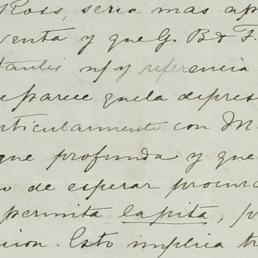 Ross, seria mas ap
venta y que G. B & F.
tantis n/ y referencia
eparece que la depres
articularmente con M
que profunda y que
o de esperar procur
permita la pita, p
cion. Esto implica tr